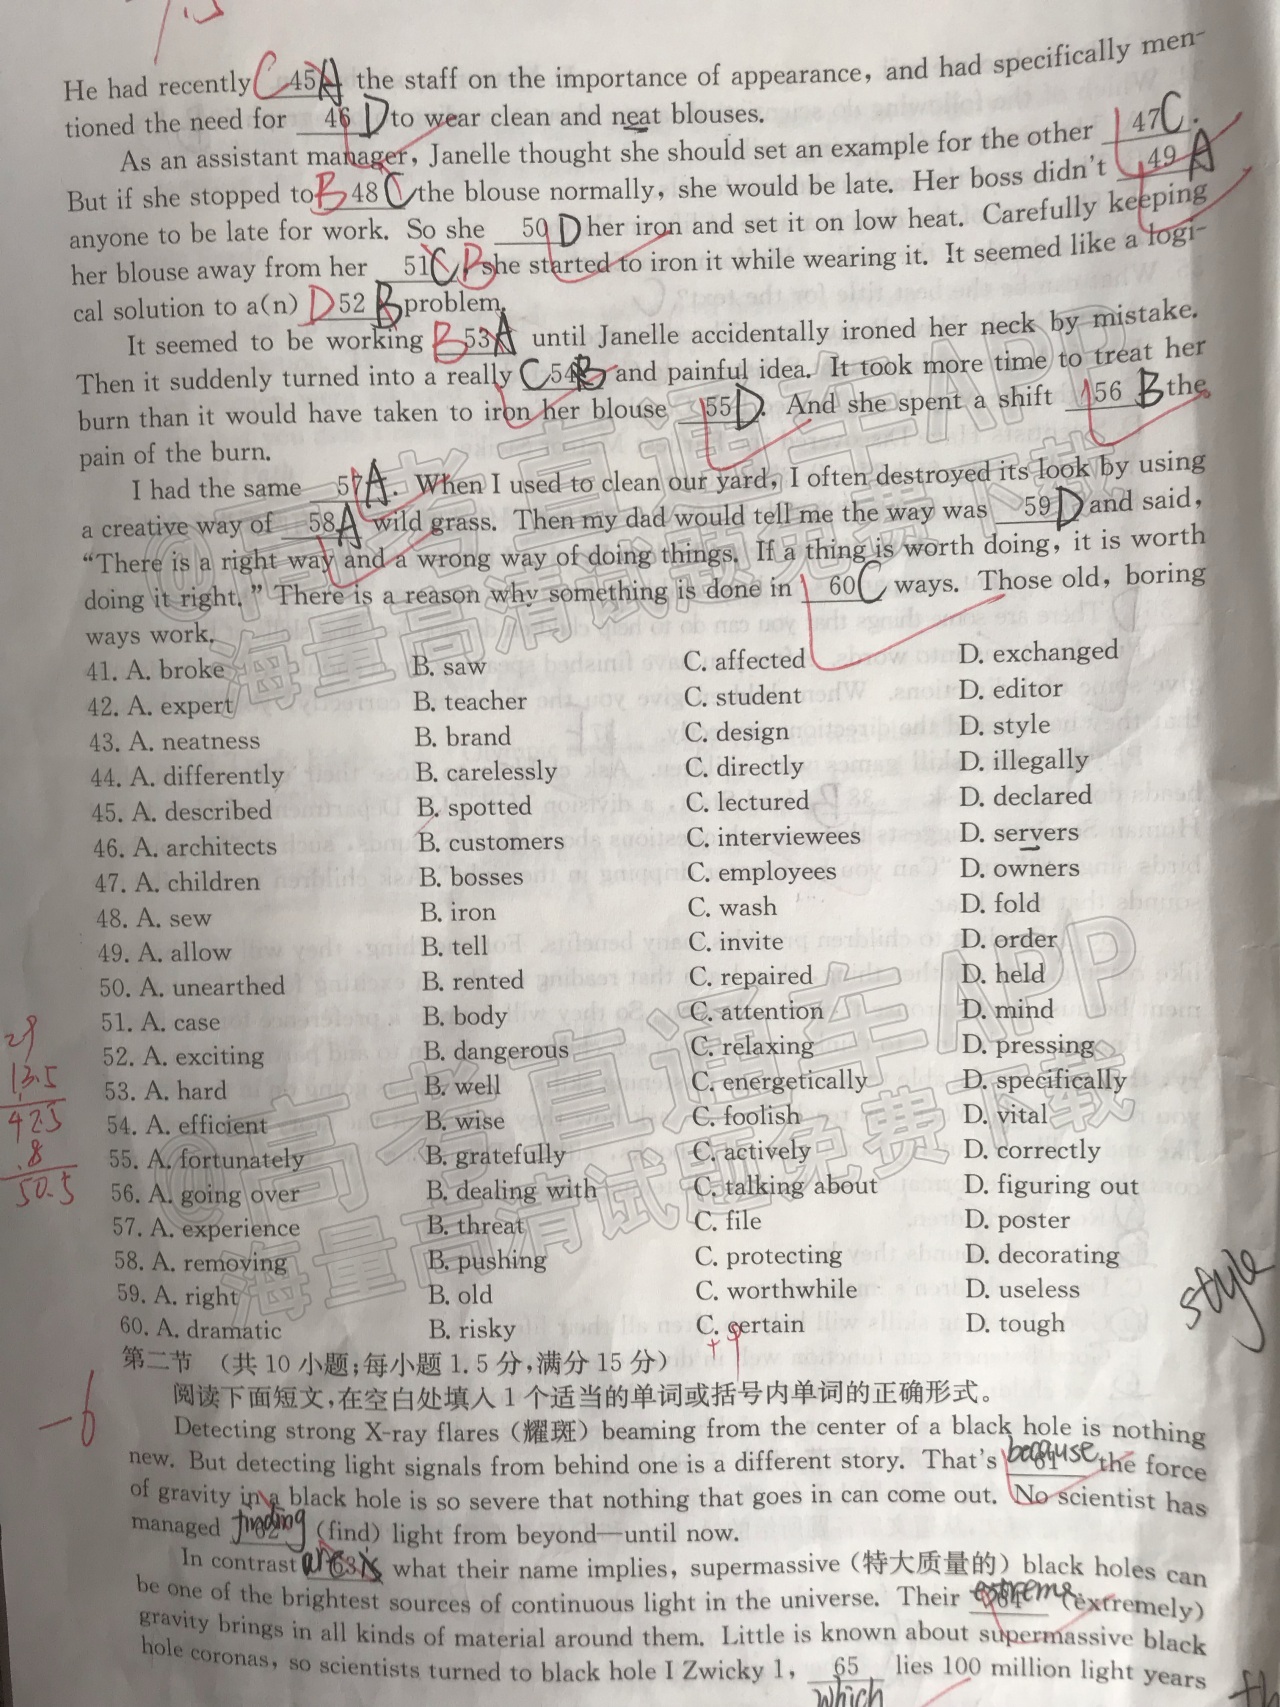 He had recently C 45A the staff on the importance of appearance, and had specifically men-
tioned the need for 46 D to wear clean and neat blouses.
As an assistant manager, Janelle thought she should set an example for the other 47C.
But if she stopped to B 48 C the blouse normally, she would be late. Her boss didn't 49 A
anyone to be late for work. So she 50 D her iron and set it on low heat. Carefully keeping
her blouse away from her 51C B, she started to iron it while wearing it. It seemed like a logi-
cal solution to a(n) D 52 B problem.
It seemed to be working B 53A until Janelle accidentally ironed her neck by mistake.
Then it suddenly turned into a really C 54B and painful idea. It took more time to treat her
burn than it would have taken to iron her blouse 55D. And she spent a shift 56 B the
pain of the burn.
I had the same 57A. When I used to clean our yard, I often destroyed its look by using
a creative way of 58A wild grass. Then my dad would tell me the way was 59D and said,
“There is a right way and a wrong way of doing things. If a thing is worth doing, it is worth
doing it right.” There is a reason why something is done in 60C ways. Those old, boring
ways work.
41. A. broke B. saw C. affected D. exchanged
42. A. expert B. teacher C. student D. editor
43. A. neatness B. brand C. design D. style
44. A. differently B. carelessly C. directly D. illegally
45. A. described B. spotted C. lectured D. declared
46. A. architects B. customers C. interviewees D. servers
47. A. children B. bosses C. employees D. owners
48. A. sew B. iron C. wash D. fold
49. A. allow B. tell C. invite D. order
50. A. unearthed B. rented C. repaired D. held
51. A. case B. body C. attention D. mind
52. A. exciting B. dangerous C. relaxing D. pressing
53. A. hard B. well C. energetically D. specifically
54. A. efficient B. wise C. foolish D. vital
55. A. fortunately B. gratefully C. actively D. correctly
56. A. going over B. dealing with C. talking about D. figuring out
57. A. experience B. threat C. file D. poster
58. A. removing B. pushing C. protecting D. decorating
59. A. right B. old C. worthwhile D. useless
60. A. dramatic B. risky C. certain D. tough
29
13.5
42.5
8
50.5
style
+9
-6
第二节 (共10小题;每小题1.5分,满分15分)
阅读下面短文,在空白处填入1个适当的单词或括号内单词的正确形式。
Detecting strong X-ray flares (耀斑) beaming from the center of a black hole is nothing
new. But detecting light signals from behind one is a different story. That's because 61 the force
of gravity in a black hole is so severe that nothing that goes in can come out. No scientist has
managed finding 62 (find) light from beyond—until now.
In contrast 63 is what their name implies, supermassive (特大质量的) black holes can
be one of the brightest sources of continuous light in the universe. Their extreme 64 (extremely)
gravity brings in all kinds of material around them. Little is known about supermassive black
hole coronas, so scientists turned to black hole I Zwicky 1, 65 lies 100 million light years
which
@高考直通车APP
海量高清试题免费下载
@高考直通车APP
海量高清试题免费下载